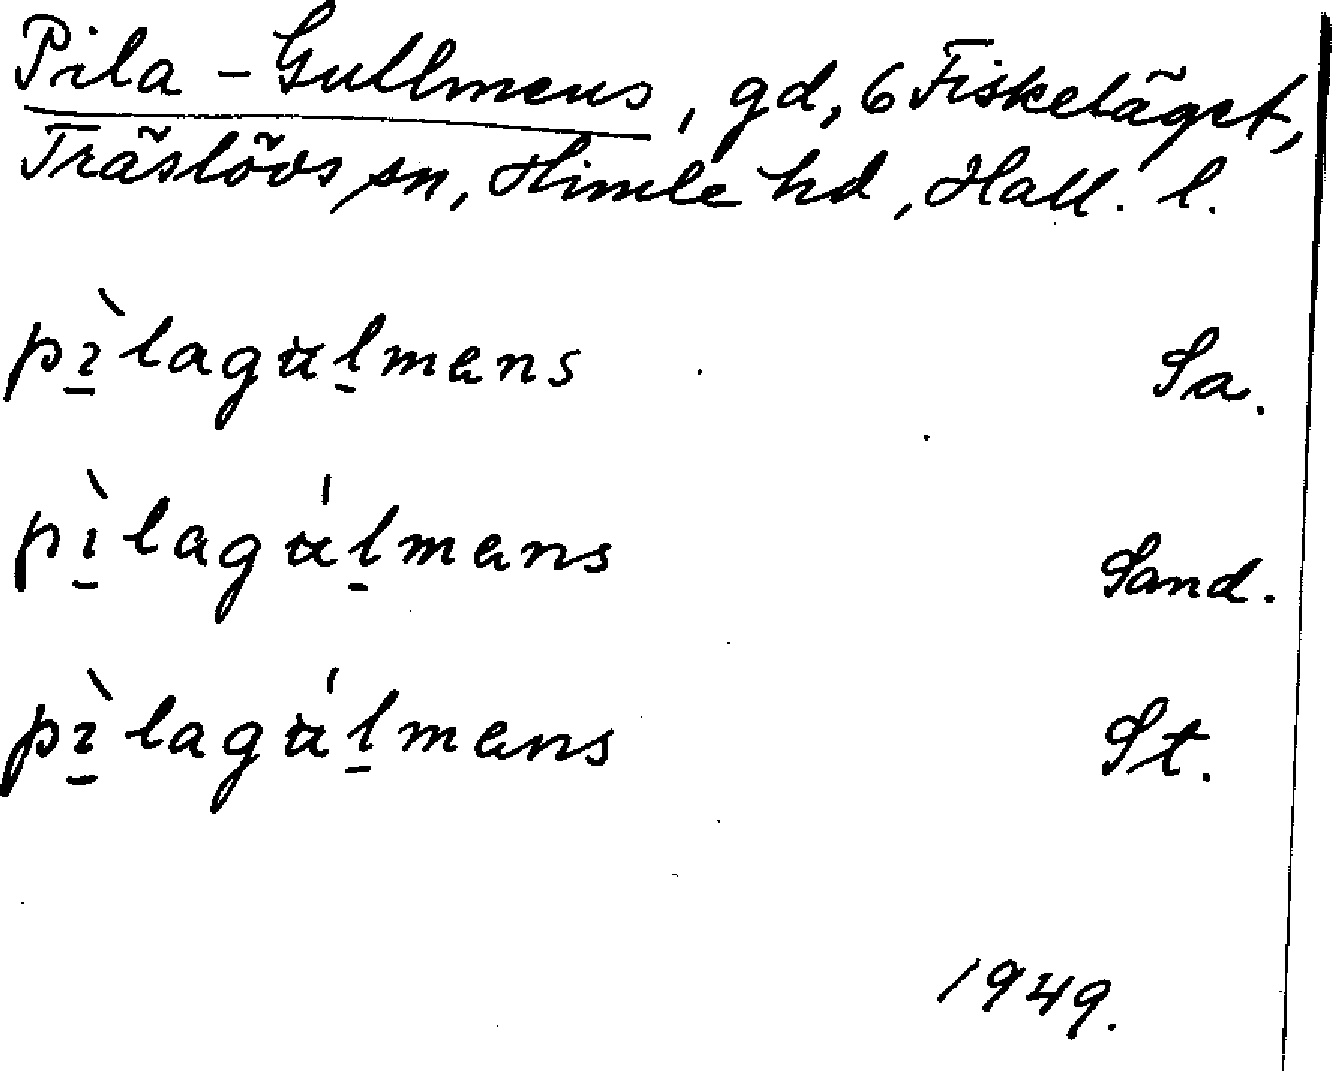 Pila-Gullmens, gd, 6 Fiskeläget,
Träslövs sn, Himle hd, Hall. l.
pìlagulmens Sa.
pìlagúlmens Sand.
pìlagúlmens St.
1949.